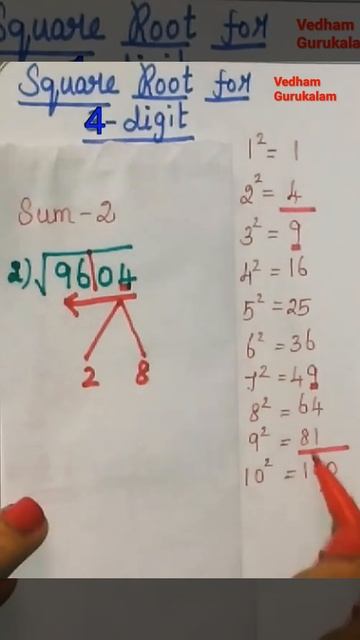 Square Root for
Vedham
Gurukala
Square Root for
Vedham
Gurukalam
4-digit
Sum-2
2) √96|04
2 8
1² = 1
2² = 4
3² = 9
4² = 16
5² = 25
6² = 36
7² = 49
8² = 64
9² = 81
10² = 1